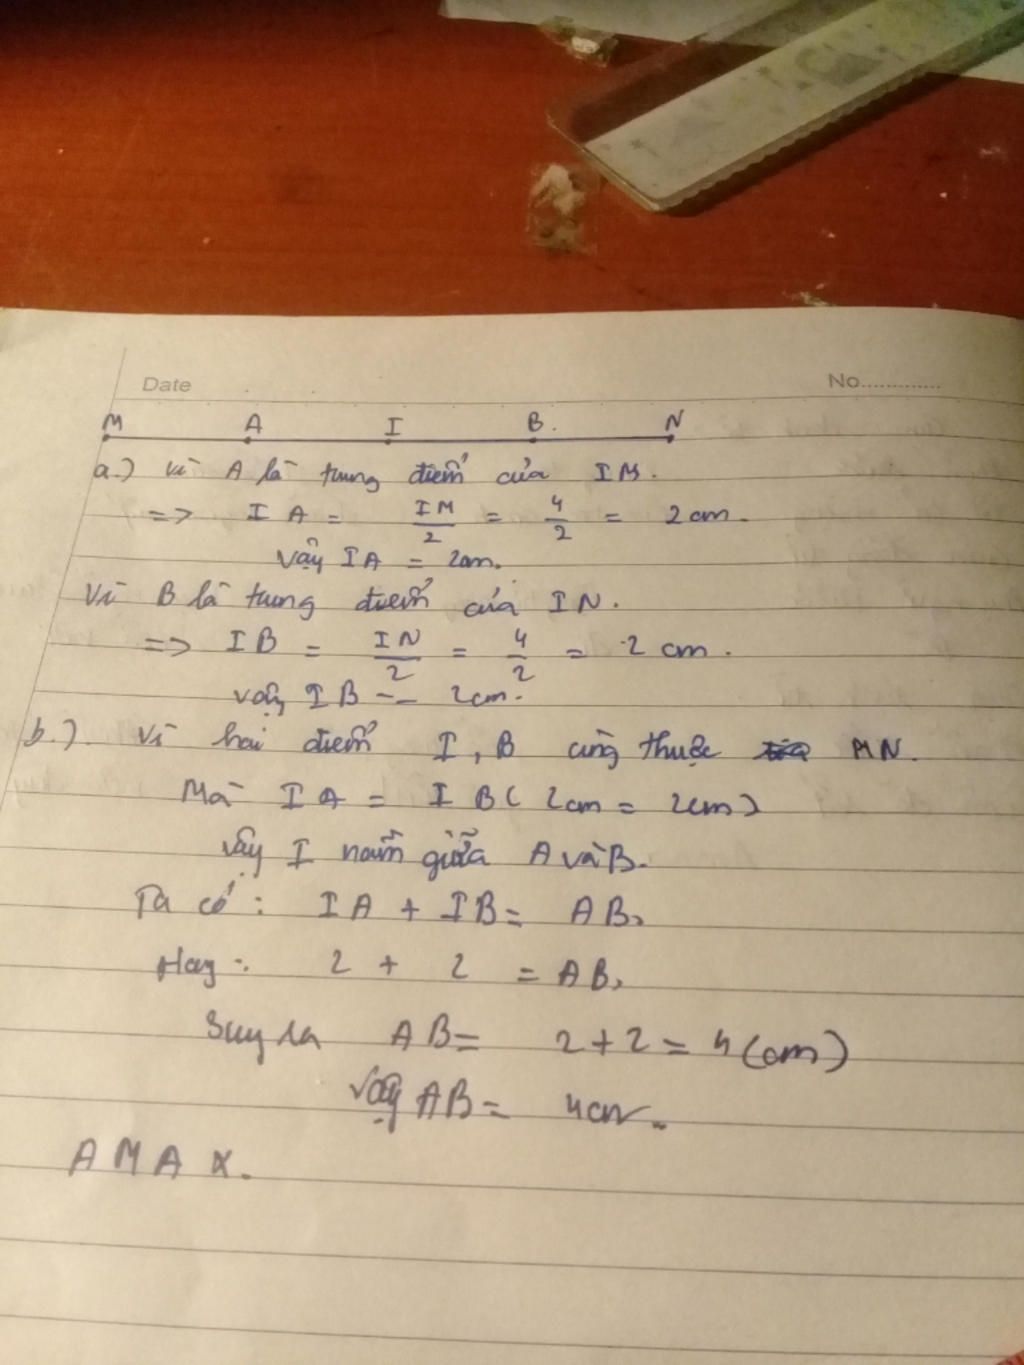 Date No.............
M A I B. N
a.) Vì A là trung điểm của IM.
=> IA = IM/2 = 4/2 = 2cm.
Vậy IA = 2cm.
Vì B là trung điểm của IN.
=> IB = IN/2 = 4/2 = 2 cm.
Vậy IB = 2cm.
b.). Vì hai điểm I, B cùng thuộc MN.
Mà IA = IB ( 2cm = 2cm)
Vậy I nằm giữa A và B.
Ta có : IA + IB = AB,
Hay : 2 + 2 = AB,
Suy ra AB = 2+2 = 4 (cm)
Vậy AB = 4cm.
AMAX.